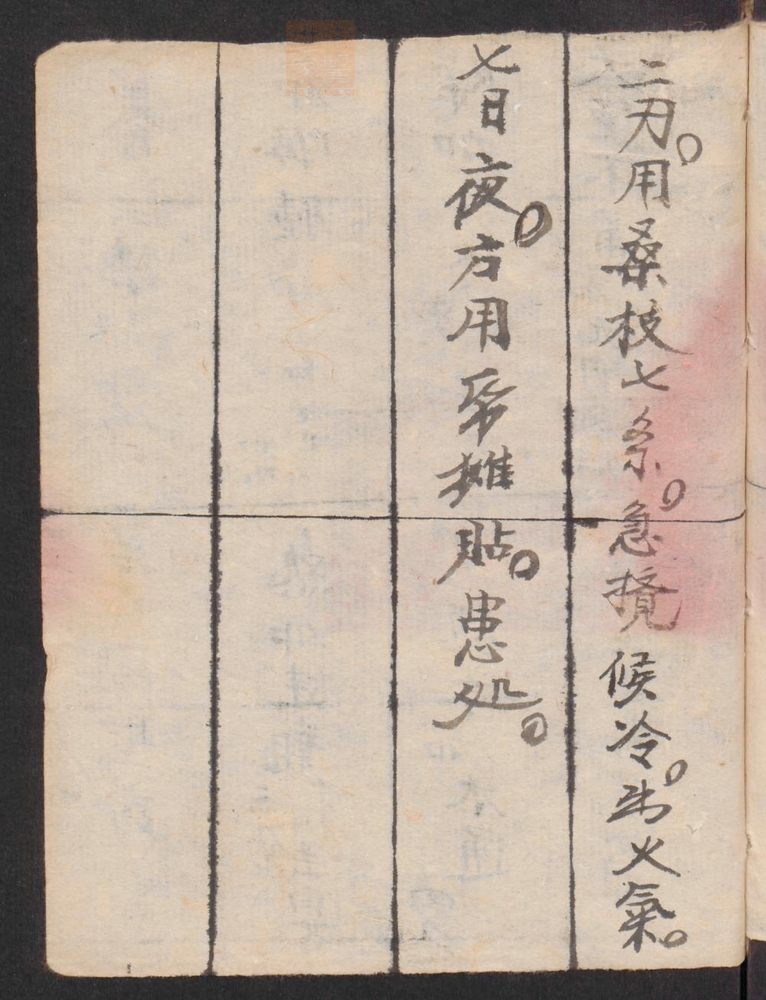 二刃。用桑枝七条。急攪候冷。出火氣。
七日夜。方用帋攤貼。患処。